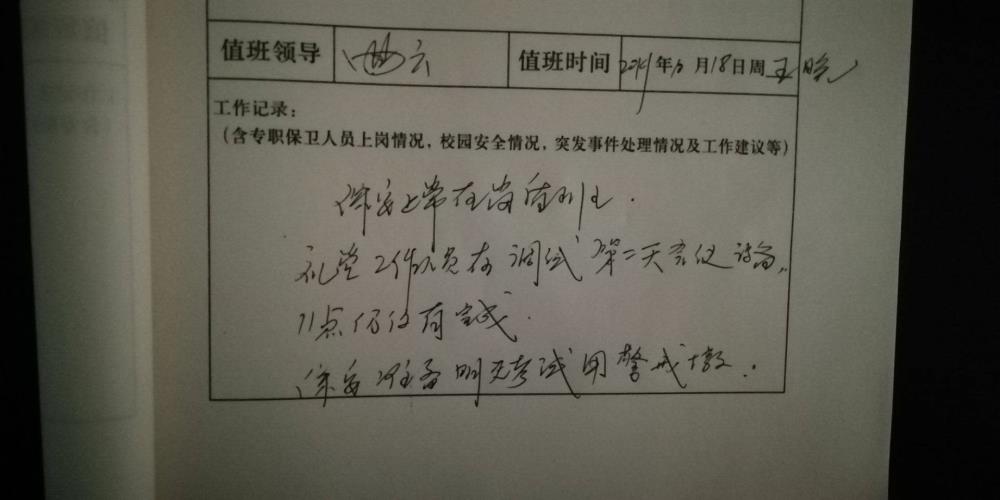 值班领导 值班时间 年 月18日周五 晚
工作记录:
(含专职保卫人员上岗情况,校园安全情况,突发事件处理情况及工作建议等)
保安正常在岗值班.
礼堂工作人员在调试第二天会议设备,
11点仍没有完成.
保安准备明天考试用警戒墩.